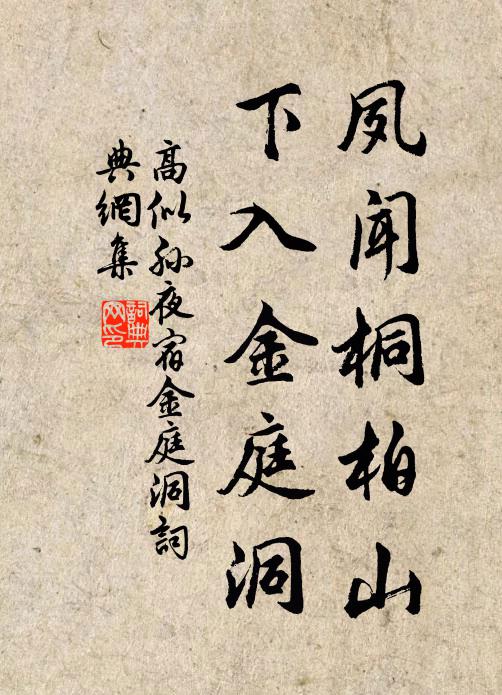 夙闻桐柏山
下入金庭洞
高似孙夜宿金庭洞詞
典網集
詞典網印